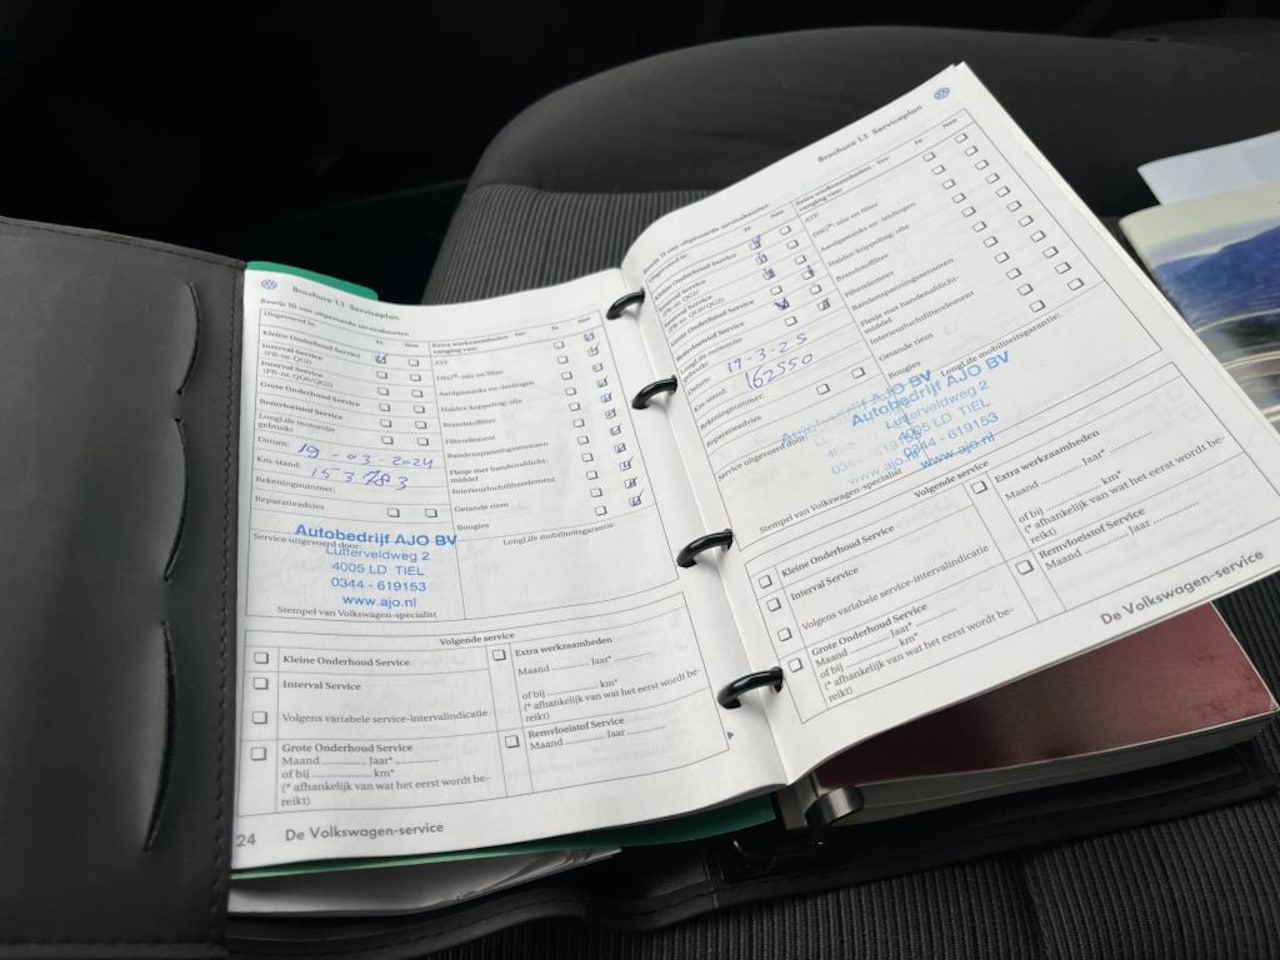 Brochure 1.1 Serviceplan
Bewijs 10 van uitgevoerde servicebeurten
Uitgevoerd is:
Ja
Nee
Kleine Onderhoud Service
Interval Service
(PR-nr. QG1)
Interval Service
(PR-nr. QG0/QG2)
Grote Onderhoud Service
Remvloeistof Service
LongLife motorolie
gebruikt
Datum: 19-03-2024
Km-stand: 153783
Rekeningnummer:
Reparatieadvies
Extra werkzaamheden - Ver-
vanging van:
Ja
Nee
ATF
DSG®-olie en filter
Aardgastanks en -leidingen
Haldex-koppeling: olie
Brandstoffilter
Filterelement
Bandenspanningssensoren
Flesje met bandenafdicht-
middel
Interieurluchtfilterelement
Getande riem
Bougies
Service uitgevoerd door:
LongLife mobiliteitsgarantie:
Autobedrijf AJO BV
Lutterveldweg 2
4005 LD TIEL
0344 - 619153
www.ajo.nl
Stempel van Volkswagen-specialist
Volgende service
Kleine Onderhoud Service
Interval Service
Volgens variabele service-intervalindicatie
Grote Onderhoud Service
Maand ............ Jaar* ............
of bij ............ km*
(* afhankelijk van wat het eerst wordt be-
reikt)
Extra werkzaamheden
Maand ............ Jaar* ............
of bij ............ km*
(* afhankelijk van wat het eerst wordt be-
reikt)
Remvloeistof Service
Maand ............ Jaar ............
24 De Volkswagen-service
Brochure 1.1 Serviceplan
Bewijs 11 van uitgevoerde servicebeurten
Uitgevoerd is:
Ja
Nee
Kleine Onderhoud Service
Interval Service
(PR-nr. QG1)
Interval Service
(PR-nr. QG0/QG2)
Grote Onderhoud Service
Remvloeistof Service
LongLife motorolie
gebruikt
Datum: 19-3-25
Km-stand: 162550
Rekeningnummer:
Reparatieadvies
Extra werkzaamheden - Ver-
vanging van:
Ja
Nee
ATF
DSG®-olie en filter
Aardgastanks en -leidingen
Haldex-koppeling: olie
Brandstoffilter
Filterelement
Bandenspanningssensoren
Flesje met bandenafdicht-
middel
Interieurluchtfilterelement
Getande riem
Bougies
Service uitgevoerd door:
LongLife mobiliteitsgarantie:
Autobedrijf AJO BV
Lutterveldweg 2
4005 LD TIEL
0344 - 619153
www.ajo.nl
Stempel van Volkswagen-specialist
Volgende service
Kleine Onderhoud Service
Interval Service
Volgens variabele service-intervalindicatie
Grote Onderhoud Service
Maand ............ Jaar* ............
of bij ............ km*
(* afhankelijk van wat het eerst wordt be-
reikt)
Extra werkzaamheden
Maand ............ Jaar* ............
of bij ............ km*
(* afhankelijk van wat het eerst wordt be-
reikt)
Remvloeistof Service
Maand ............ Jaar ............
De Volkswagen-service